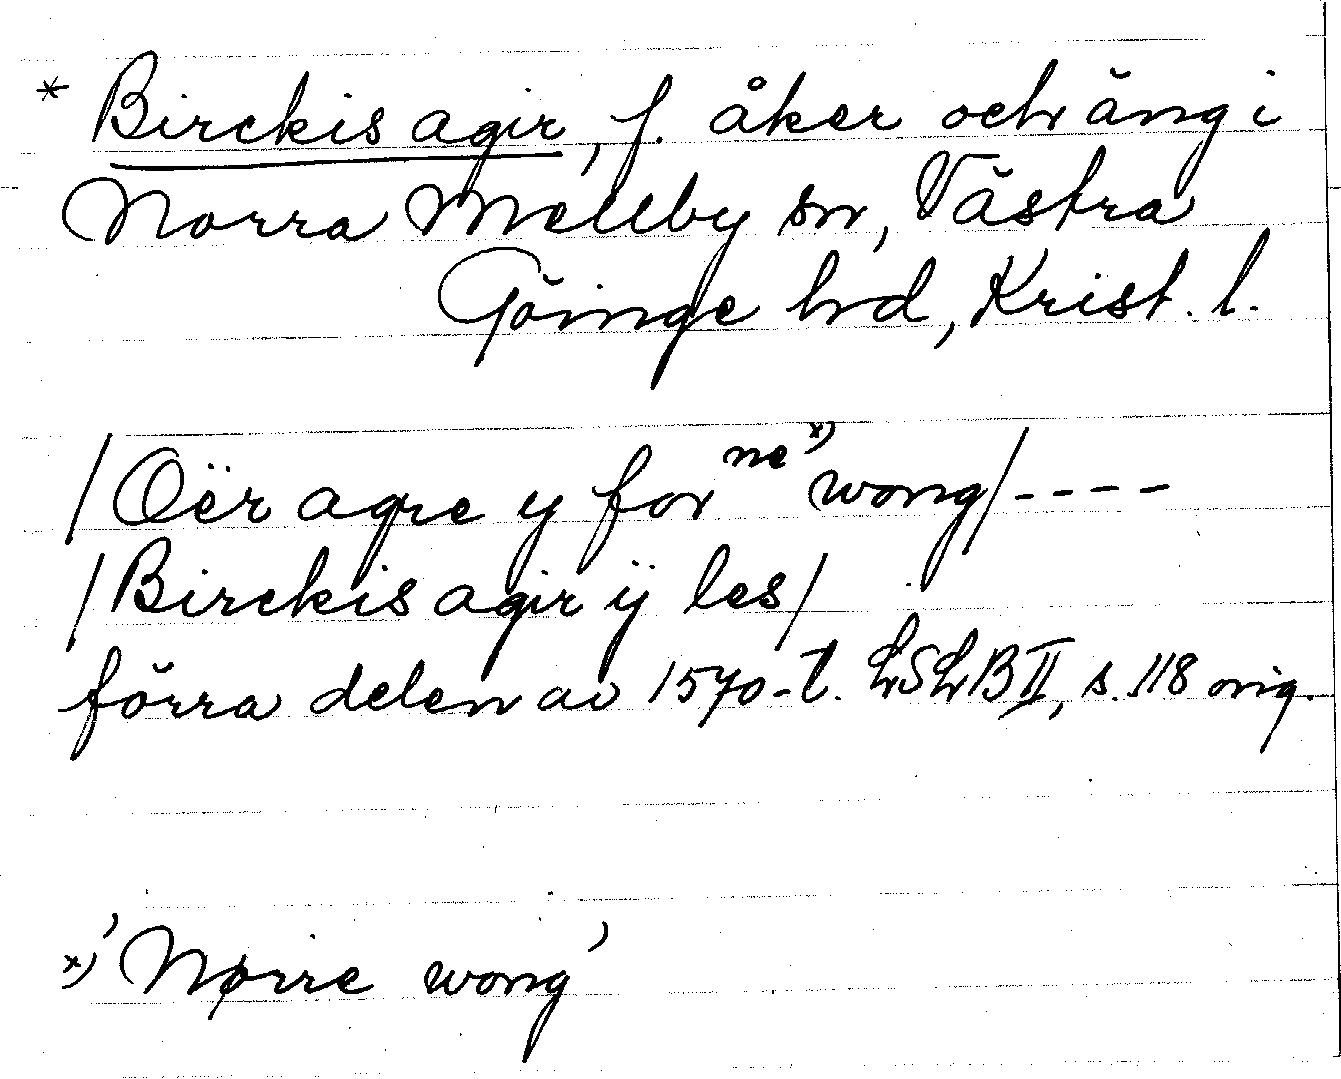 * Birckis agir, f. åker och äng i
Norra Mellby sn, Västra
Göinge hd, Krist. l.
/Oër agre y for ne x) wong/----
/Birckis agir ÿ les/
förra delen av 1570-t. LSLB II, s. 118 orig.
x) 'Nørre wong'